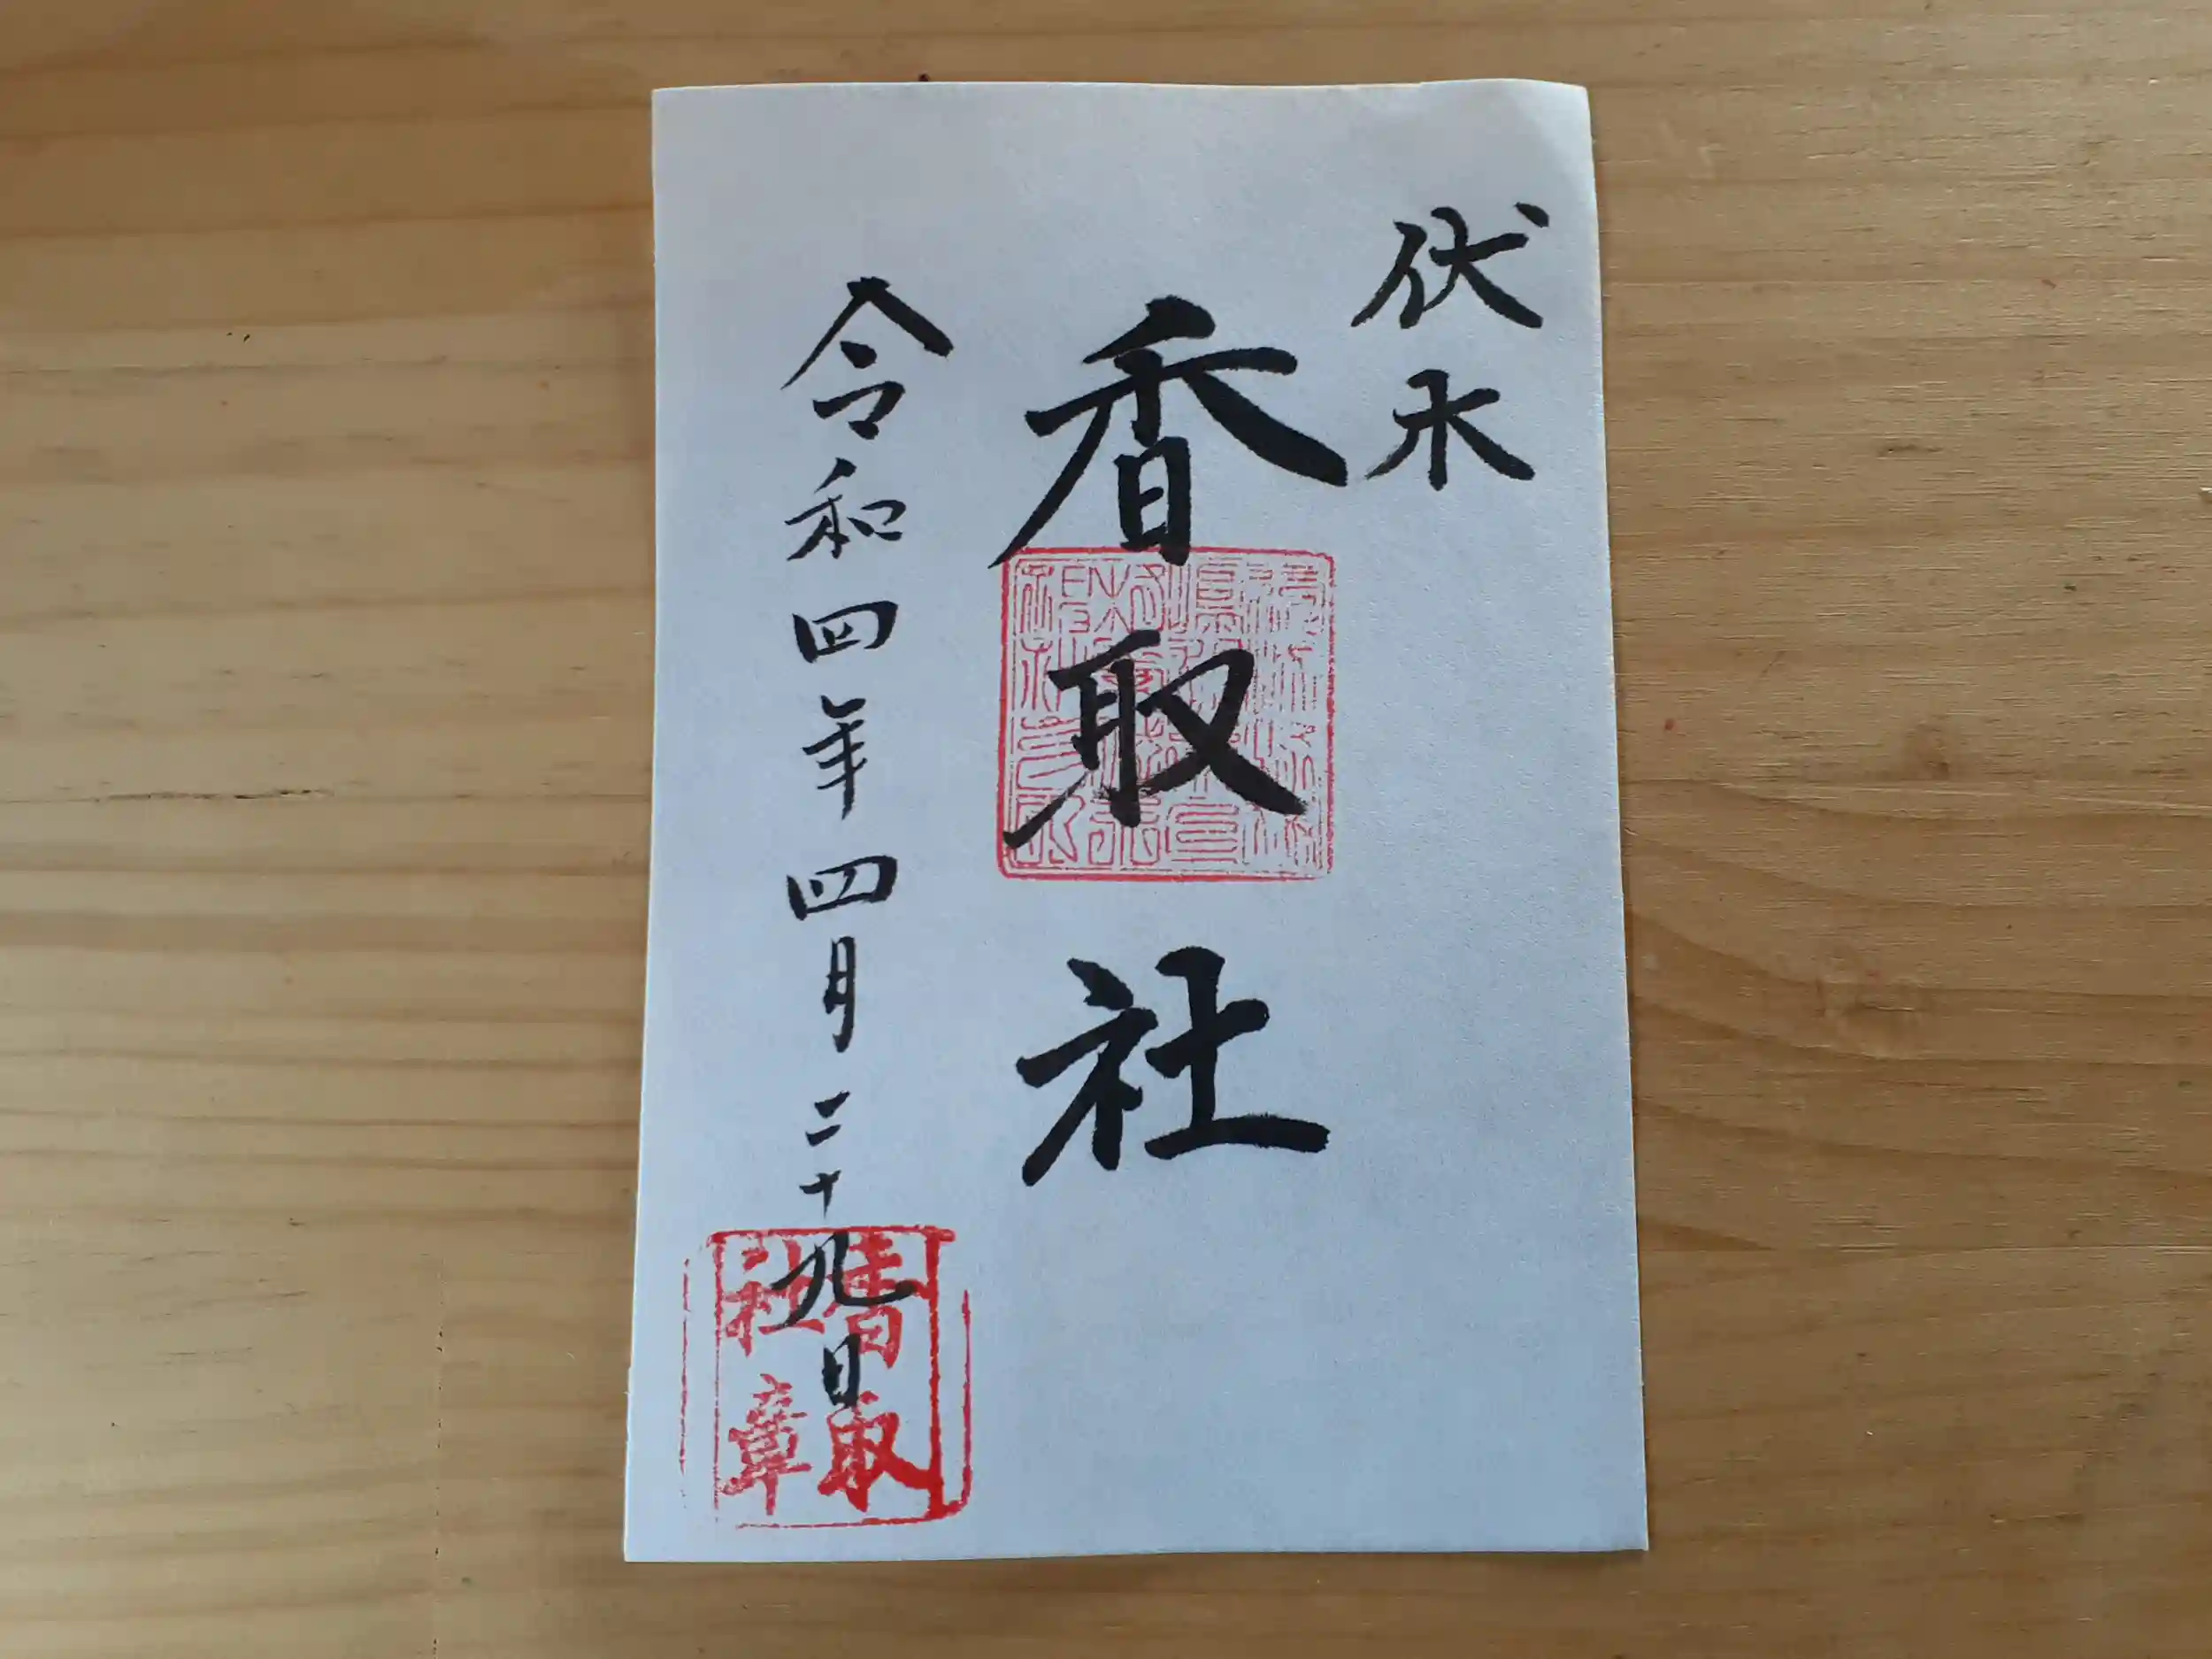 伏木
香取社
令和四年四月二十九日
香取
社章